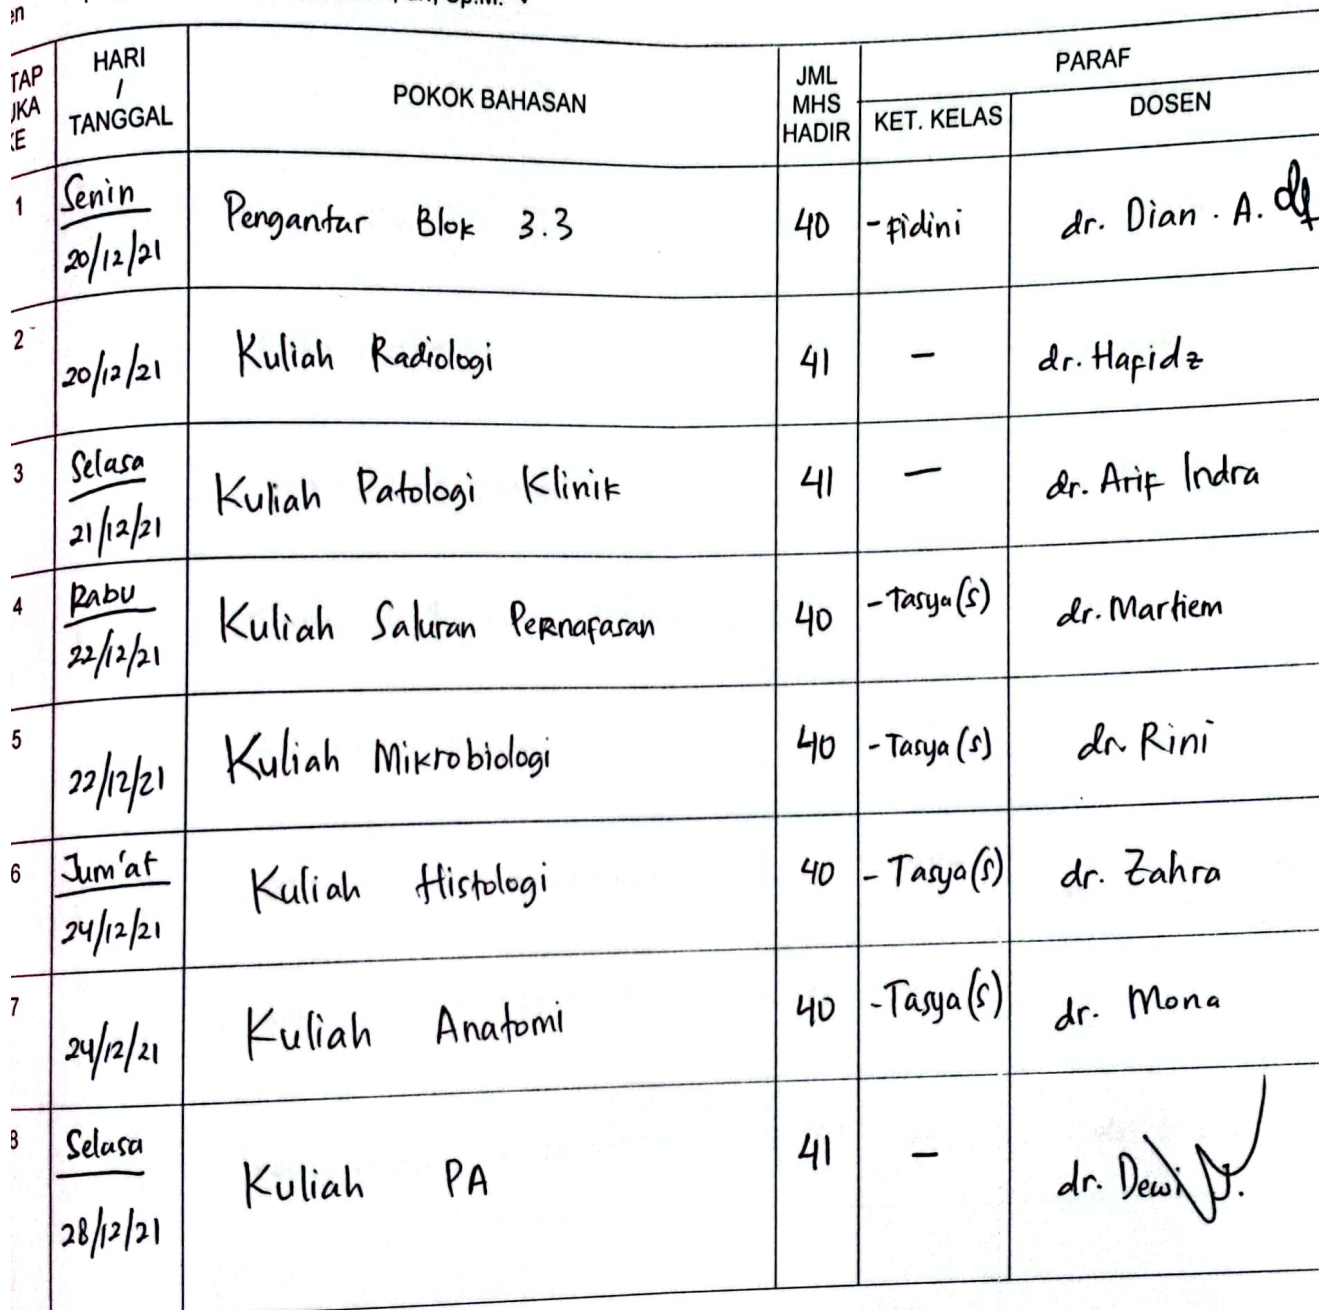 en
Sp.M.
TAP
UKA
KE
HARI
/
TANGGAL
POKOK BAHASAN
JML
MHS
HADIR
PARAF
KET. KELAS
DOSEN
1
Senin
20/12/21
Pengantar Blok 3.3
40
-Fidini
dr. Dian . A.
2
20/12/21
Kuliah Radiologi
41
-
dr. Hafidz
3
Selasa
21/12/21
Kuliah Patologi Klinik
41
-
dr. Arif Indra
4
Rabu
22/12/21
Kuliah Saluran Pernafasan
40
-Tasya(s)
dr. Martiem
5
22/12/21
Kuliah Mikrobiologi
40
-Tasya (s)
dr. Rini
6
Jum'at
24/12/21
Kuliah Histologi
40
- Tasya(s)
dr. Zahra
7
24/12/21
Kuliah Anatomi
40
-Tasya(s)
dr. Mona
8
Selasa
28/12/21
Kuliah PA
41
-
dr. Dewi